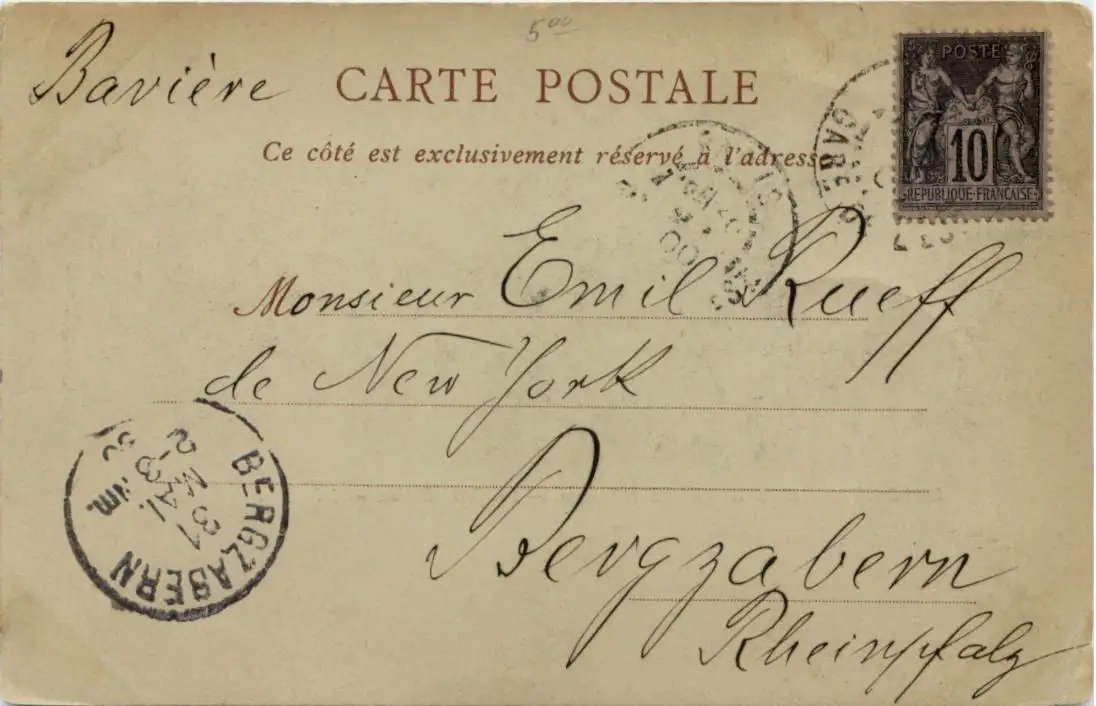 5⁰⁰
Bavière CARTE POSTALE
Ce côté est exclusivement réservé à l'adresse
POSTE
10
REPUBLIQUE FRANÇAISE
GARE
PARIS
00
Monsieur Emil Rueff
de New York
Bergzabern
Rheinpfalz
BERGZABERN
31
MAI.
2-3